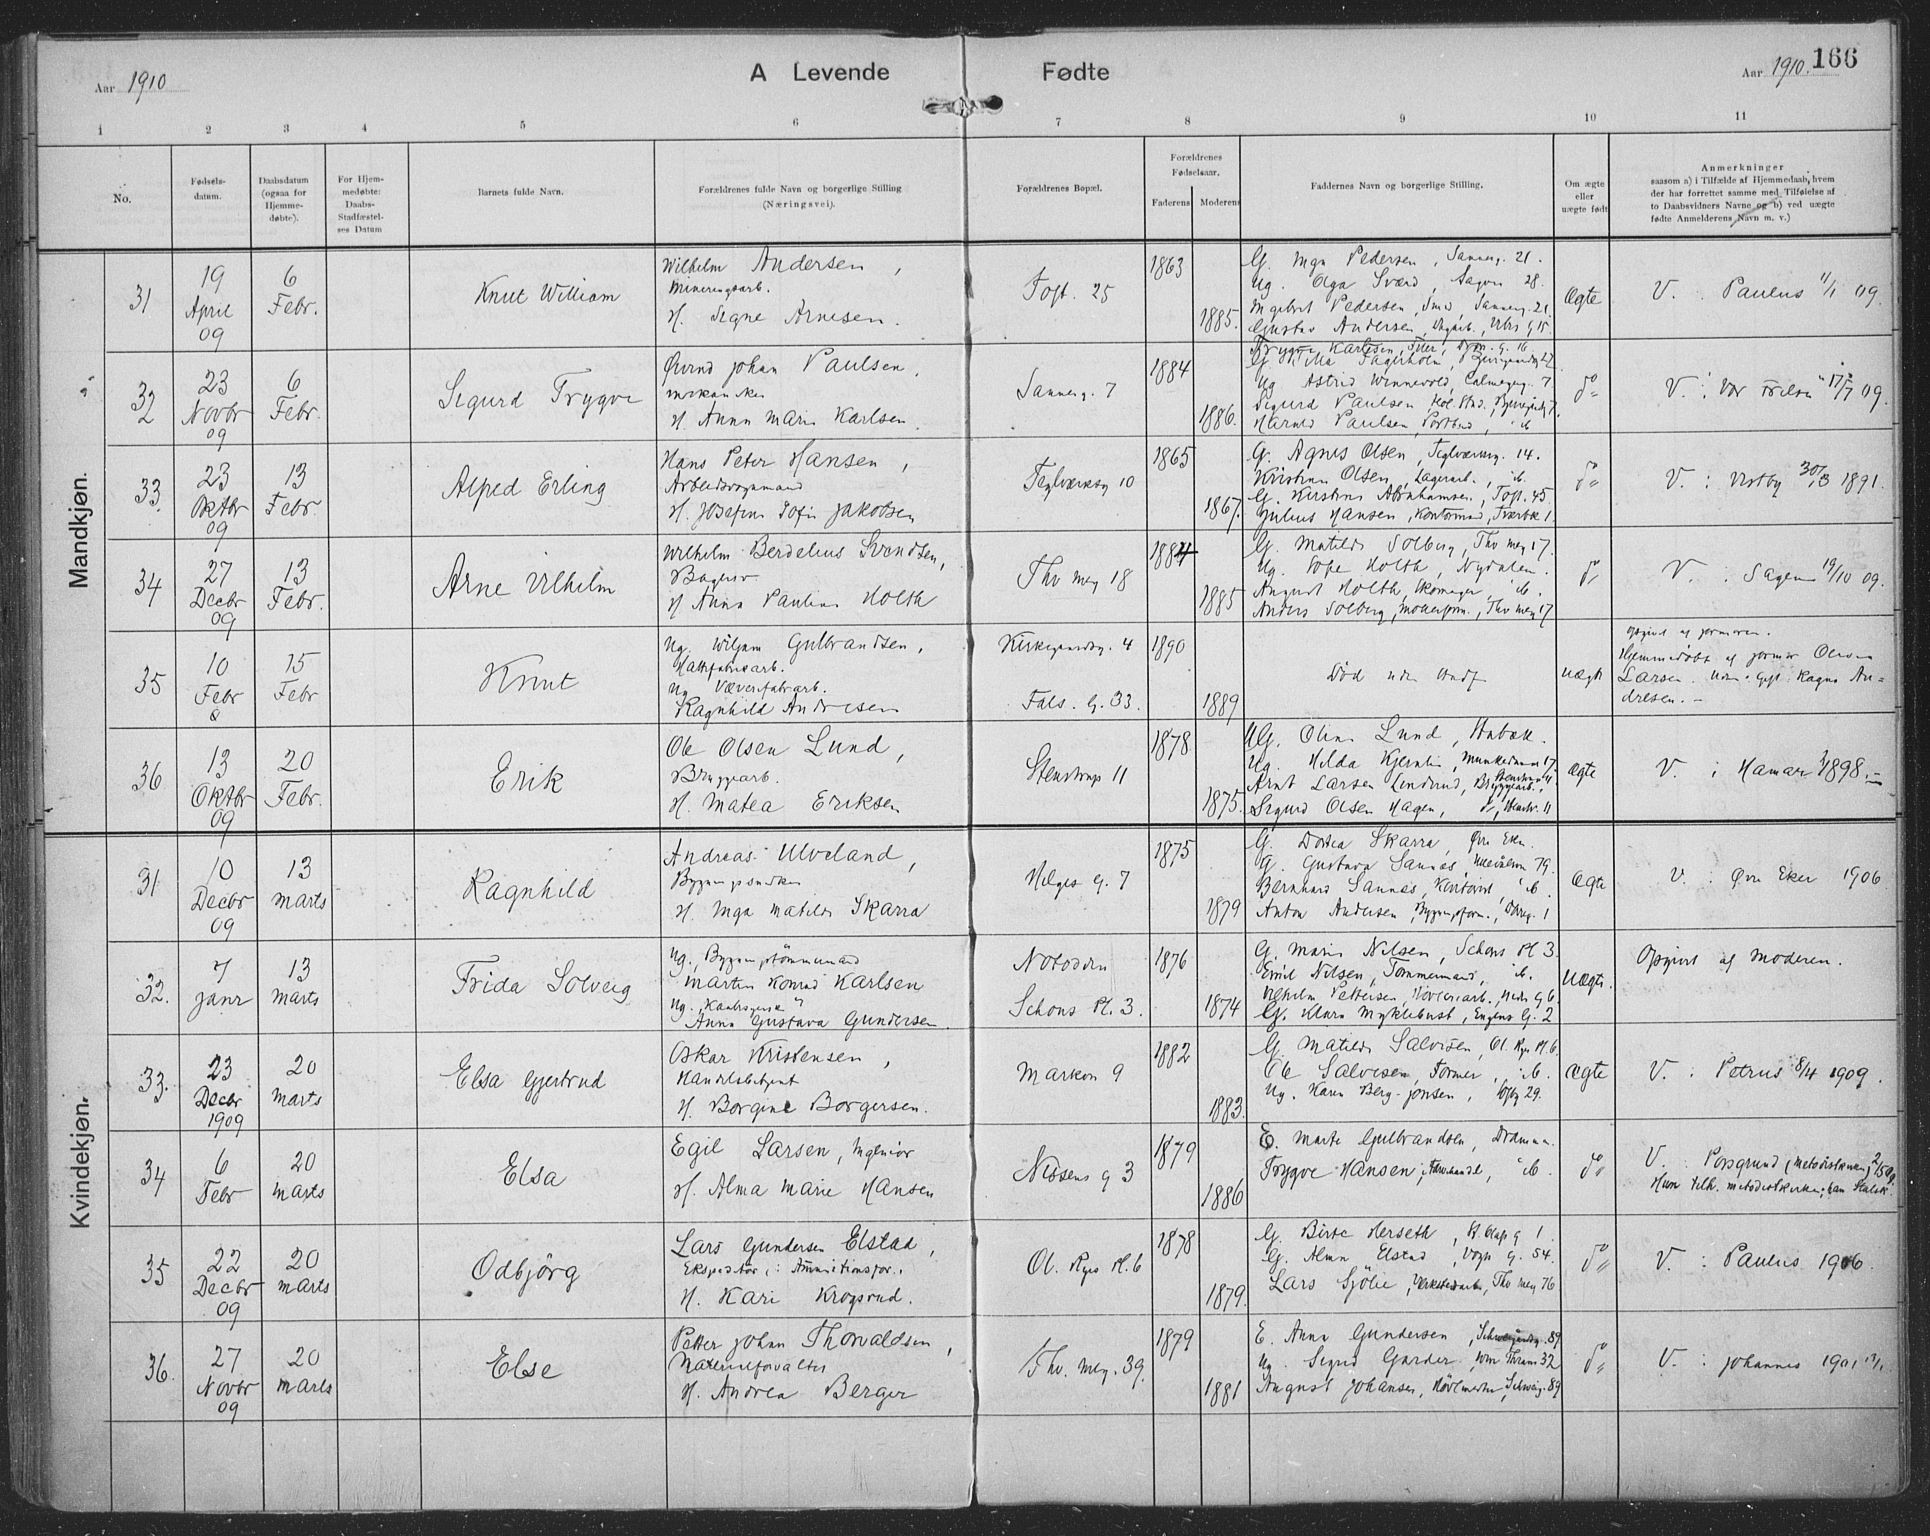 Aar 1910
A Levende Fødte
Aar 1910. 166
1 2 3 4 5 6 7 8 9 10 11
No.
Fødsels-
datum.
Daabsdatum
(ogsaa for
Hjemme-
døbte).
For Hjem-
medøbte:
Daabs-
Stadfæstel-
ses Datum
Barnets fulde Navn.
Forældrenes fulde Navn og borgerlige Stilling
(Næringsvei).
Forældrenes Bopæl.
Forældrenes
Fødselsaar.
Faderens Moderens
Faddernes Navn og borgerlige Stilling.
Om ægte
eller
uægte født
Anmerkninger
saasom a) i Tilfælde af Hjemmedaab, hvem
der har forrettet samme med Tilføielse af
to Daabsvidners Navne og b) ved uægte
fødte Anmelderens Navn m. v.)
Mandkjøn.
31
19
April
09
6
Febr.
Knut William
Wilhelm Andersen,
H. Signe Arnesen.
Toft. 25
1863
1885.
G. Inga Pedersen, Sannerg. 21.
Ug. Olga Sværd, Aagon 28.
Ingebret Pedersen, Smed, Sannerg. 21.
Gustav Andersen,
Ægte
V. : Paulus 1/1 09.
32
23
Novbr
09
6
Febr.
Sigurd Trygve
Øivind Johan Paulsen,
mekaniker
H. Anna Marie Karlsen.
Sannerg. 7
1884
1886.
Trygve Karlsen,
Ug Astrid Winnevold, Calmeyerg. 7
Sigurd Paulsen,
Harald Paulsen, Postbud, ib
do
V. : Vor Frelser 17/7 09.
33.
23
Oktbr
09
13
Febr
Alfred Erling
Hans Peter Hansen,
Arbeidsformand
H. Josefine Sofie Jakobsen
Teglverksg 10
1865
1867.
G. Agnes Olsen, Teglverksg. 14.
Kristian Olsen, Lagerarb., ib.
G. Kirstine Abrahamsen, Toft. 45
Julius Hansen, Kontormand,
do
V. : Vestby 30/3 1891.
34
27
Decbr
09
13
Febr.
Arne Vilhelm
Wilhelm Berdelius Svendsen,
Bager
H Anna Pauline Holth
Thv mey 18
1884
1885
G. Matilde Solberg, Thv mey 17.
Ug. Sofie Holth, Nydalen.
August Holth, Skomager, ib.
Anders Solberg, Thv mey 17
do
V. : Sagene 19/10 09.
35
10
Febr
15
Febr
Knut
Ug. Wiljam Gulbrandsen,
Hattefabrikarb.
Ug Væverifabarb.
Ragnhild Andresen
Kirkegaardsg. 4
Fals. G. 33.
1890
1889
Død uden Daab
uægte
Opgivet af jormoren.
Hjemmedøbt af jormor Olivia
Larsen. Ragna An-
dresen.
36
13
Oktbr
09
20
Febr.
Erik
Ole Olsen Lund,
Bryggearb.
H. Matea Eriksen
Stenstrup 11
1878
1875.
UG. Oline Lund,
Ug. Hilda Kjernlie, Munkedamm 17
Arnt Larsen Linderud, Bryggearb.,
Sigurd Olsen Hagen, do, Stenstr. 11
ægte
V. : Hamar 1898.
Kvindekjøn.
31
10
Decbr
09
13
Marts
Ragnhild
Andreas Ulveland,
Bygningssnedker
H. Inga Matilde Skarra
Helges G. 7
1875
1879
G. Dortea Skarra, Øvre Eker.
G. Gustava Sannes, 79.
Bernhard Sannes, Kontorist, ib.
Anton Andersen,
Ægte
V. : Øvre Eker 1906
32.
7
Janr
13
Marts
Frida Solveig
Ug., Bygningstømmermand
Martin Konrad Karlsen
Ug.
Anna Gustava Gundersen.
Notodden
Schous Pl. 3.
1876
1874
G. Marie Nilsen, Schous Pl 3.
Emil Nilsen, Tømmermand, ib.
Vilhelm Pettersen,
G. Klara Myklebust, Eugens G. 2
Uægte.
Opgivet af Moderen.
33.
23
Decbr
1909
20
Marts
Elsa Gjertrud
Oskar Kristensen,
Handelsbetjent
H. Borgine Borgersen.
Markvn 9
1882
1883.
G. Matilde Salvesen, Ol. Ryes Pl. 6.
Ole Salvesen, Former, ib.
Ug. Karen Berg-Jonsen, 29.
Ægte
V. : Petrus 8/4 1909.
34
6
Febr
20
Marts
Elsa
Egil Larsen, Ingeniør
H. Alma Marie Hansen
Nissens G 3
1879
1886
E. Marte Gulbrandsen, Drammen.
Trygve Hansen, ib.
do
V. : Porsgrund (Metodistkirken) 2/5 09.
Hun tilh. metodistkirken, han Statsk.
35
22
Decbr
09
20
Marts
Odbjörg
Lars Gundersen Elstad,
Ekspeditör,
H. Kari Krogsrud.
Ol. Ryes Pl. 6
1878
1879.
G. Birte Herseth,
G. Alma Elstad, Vogts G. 54.
Lars Sjölie, Verkstedarb, Thv mey 76
do
V. : Paulus 1906.
36.
27
Novbr
09
20
Marts
Else
Petter Johan Thorvaldsen,
Materialforvalter
H. Andrea Berger
Thv. Mey. 39.
1879
1881
E. Anna Gundersen, Schweigaardsg. 89
Ug. Sigrid Garder, 32
August Johansen, Schweig. 89
do
V. : Johannes 1901